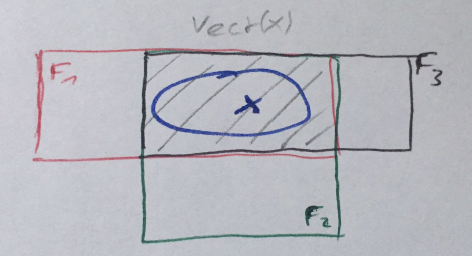 Vect(X)
F₁
F₃
X
F₂